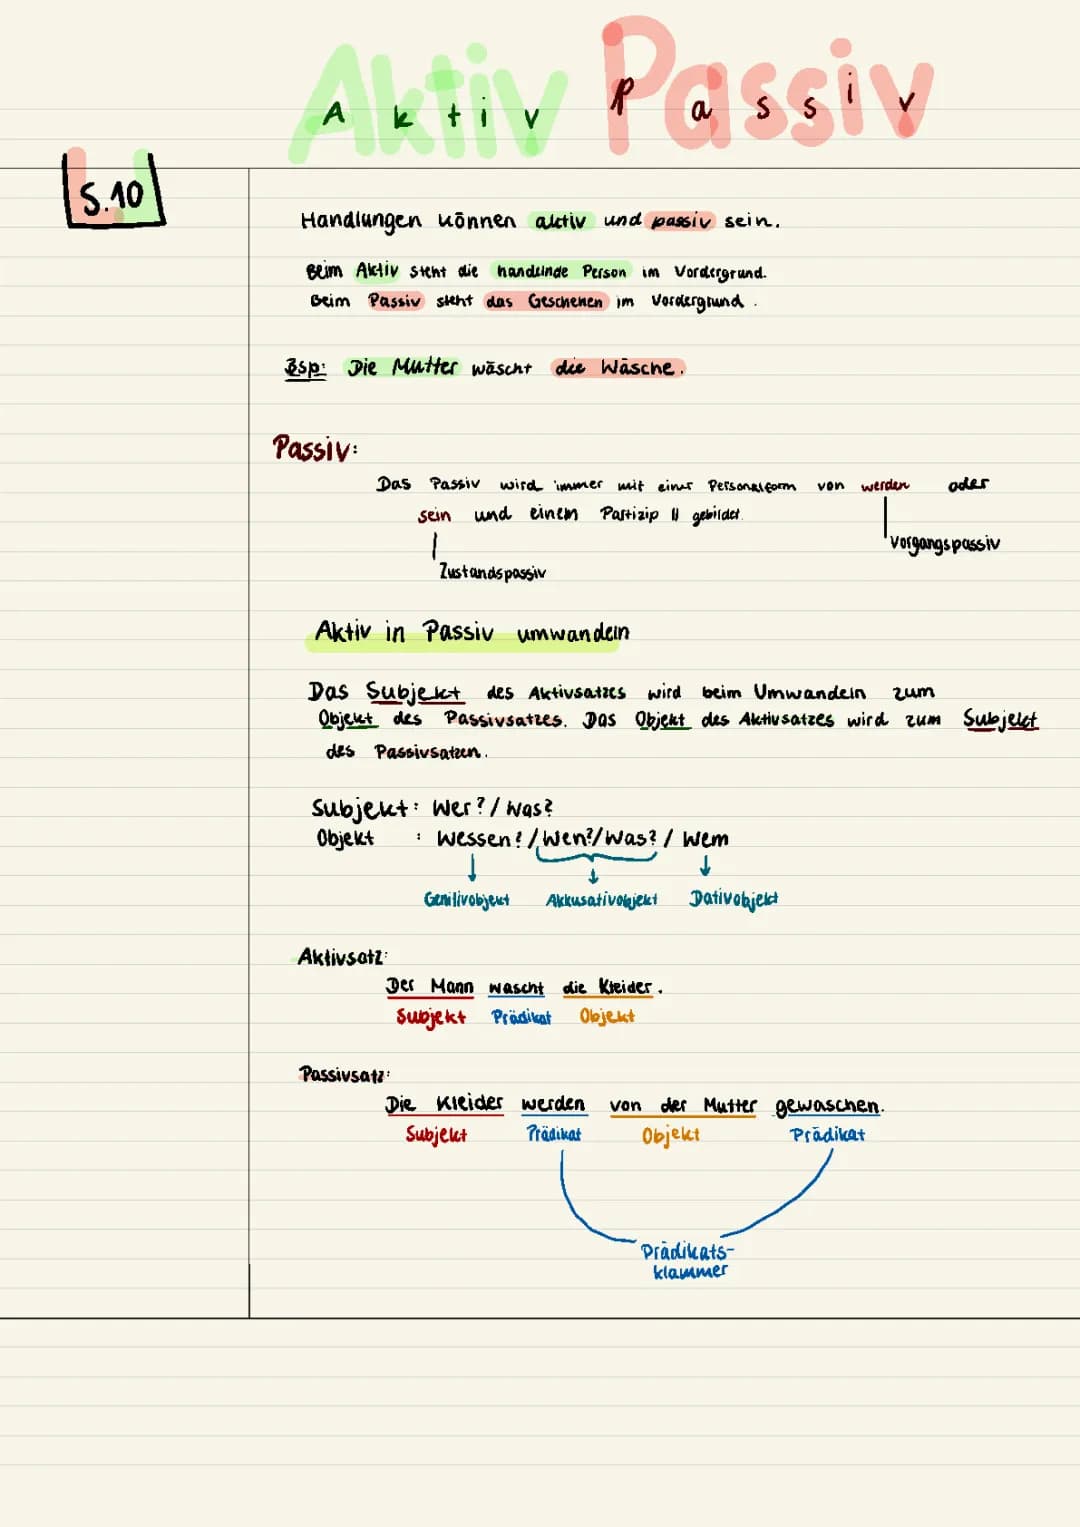 Aktiv Passiv
S.10
Handlungen können aktiv und passiv sein.
Beim Aktiv steht die handelnde Person im Vordergrund.
Beim Passiv steht das Geschehen im Vordergrund.
Bsp: Die Mutter wäscht die Wäsche.
Passiv:
Das Passiv wird immer mit einer Personalform von werden oder
sein und einem Partizip II gebildet.
Vorgangspassiv
Zustandspassiv
Aktiv in Passiv umwandeln
Das Subjekt des Aktivsatzes wird beim Umwandeln zum
Objekt des Passivsatzes. Das Objekt des Aktivsatzes wird zum Subjekt
des Passivsatzen.
Subjekt: Wer?/Was?
Objekt : Wessen?/Wen?/Was?/Wem
Genitivobjekt Akkusativobjekt Dativobjekt
Aktivsatz:
Der Mann wascht die Kleider.
Subjekt Prädikat Objekt
Passivsatz:
Die Kleider werden von der Mutter gewaschen.
Subjekt Prädikat Objekt Prädikat
Prädikats-
klammer